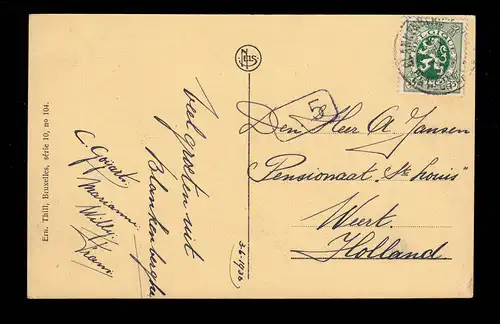 Ern. Thill, Bruxelles, série 10, no 104.
veel groeten uit
Blankenberghe
C. Gogarti
Marianne
Willy
Fram
3-6-1930
NELS
BELGIQUE
53
Den Heer A Jansen
Pensionaat "St Louis"
Weert.
Holland